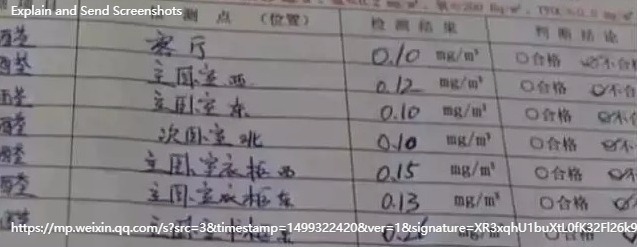 Explain and Send Screenshots
测点 (位置) 检测结果 判断结论
醛 客厅 0.10 mg/m³ ○合格 不合
醛 主卧室西 0.12 mg/m³ ○合格 不合
醛 主卧室东 0.10 mg/m³ ○合格 不合
醛 次卧室北 0.10 mg/m³ ○合格 不
醛 主卧室衣柜西 0.15 mg/m³ ○合格 不
醛 主卧室衣柜东 0.13 mg/m³ ○合格 不
https://mp.weixin.qq.com/s?src=3&timestamp=1499322420&ver=1&signature=XR3xqhU1buXtL0fK32Fl26k9